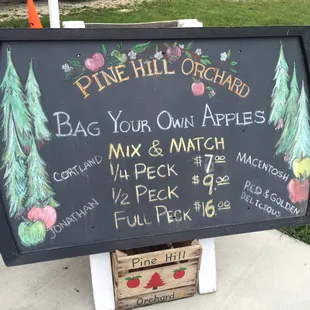 PINE HILL ORCHARD
BAG YOUR OWN APPLES
MIX & MATCH
CORTLAND
JONATHAN
1/4 PECK $7.00
1/2 PECK $9.00
FULL PECK $16.00
MACENTOSH
RED & GOLDEN
DELICIOUS
Pine Hill
Orchard